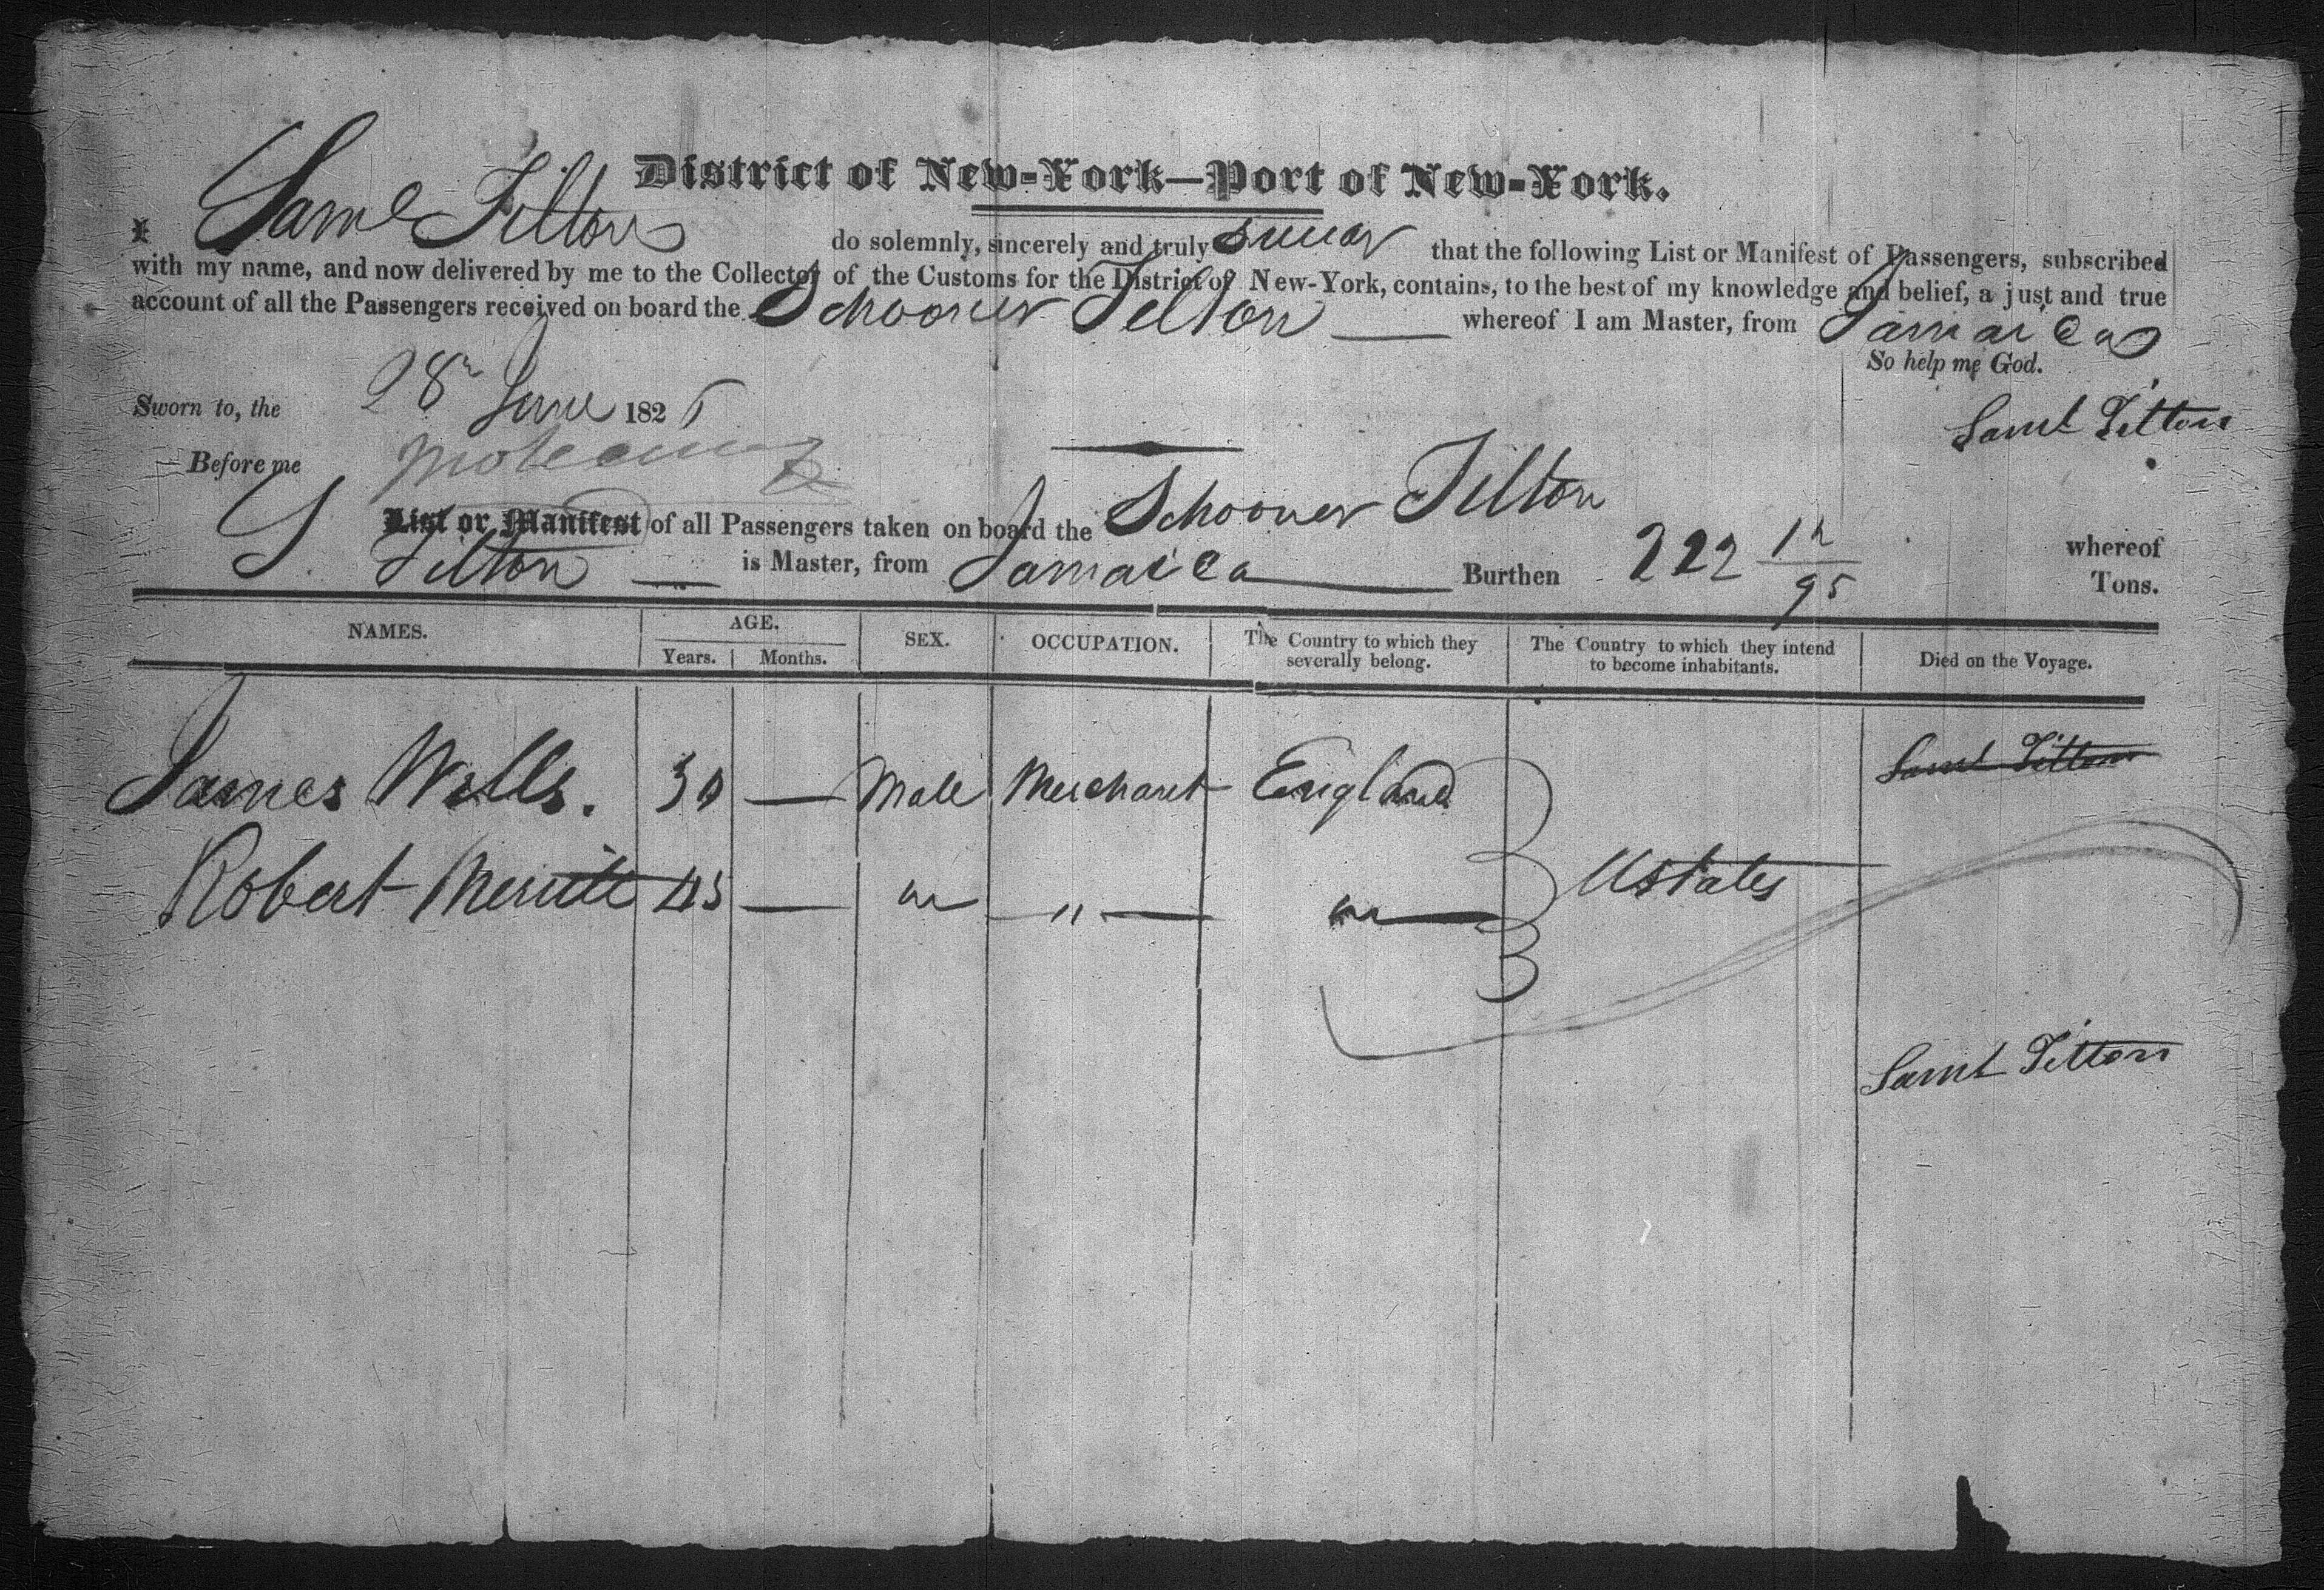 District of New-York—Port of New-York.
I Saml Tilton do solemnly, sincerely and truly swear that the following List or Manifest of Passengers, subscribed
with my name, and now delivered by me to the Collector of the Customs for the District of New-York, contains, to the best of my knowledge and belief, a just and true
account of all the Passengers received on board the Schooner Tilton whereof I am Master, from Jamaica
So help me God.
Sworn to, the 28 June 182
Saml Tilton
Before me
List or Manifest of all Passengers taken on board the Schooner Tilton whereof
S. Tilton is Master, from Jamaica Burthen 222 12/95 Tons.
NAMES. AGE. SEX. OCCUPATION. The Country to which they severally belong. The Country to which they intend to become inhabitants. Died on the Voyage.
Years. Months.
Saml Tilton
James Wells. 30 — Male Merchant England
Robert Merritt 45 — " " " Ustates
Saml Tilton